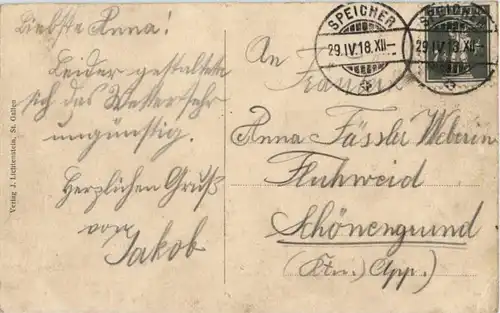 Liebste Anna!
Leider gestaltete
sich das Wetter sehr
ungünstig.
Herzlichen Gruß
von
Jakob
Verlag J. Lichtenstein, St. Gallen
SPEICHER
29.IV.18.XII-
SPEICHER
29.IV.18.XII-
An
Anna Fässler Weberin
Fluhweid
Schönengrund
(Ktn.) App.)